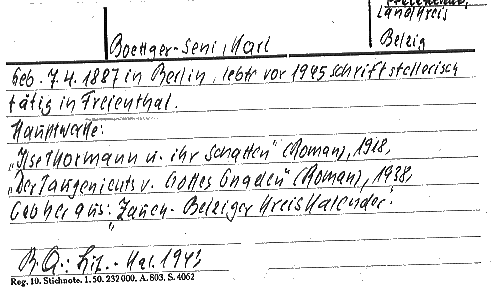 Freienthal,
Landkreis
Belzig
Boettger-Seni, Karl
Geb. 7.4.1887 in Berlin, lebte vor 1945 schriftstellerisch
tätig in Freienthal.
Hauptwerke:
„Ilse Thormann u. ihr Schatten" (Roman), 1918,
„Der Taugenichts v. Gottes Gnaden" (Roman), 1938,
Gab heraus: „Zauch-Belziger Kreiskalender".
B.Q.: Lit.-Kal. 1943
Reg. 10. Stichnote. 1. 50. 232000. A. 803. S. 4062